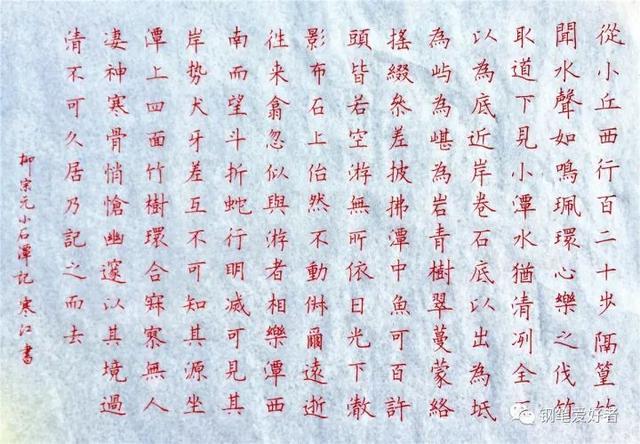 從小丘西行百二十步隔篁竹
聞水聲如鳴珮環心樂之伐竹
取道下見小潭水猶清冽全
以為底近岸卷石底以出為坻
為屿為嵁為岩青樹翠蔓蒙絡
搖綴參差披拂潭中魚可百許
頭皆若空游無所依日光下澈
影布石上佁然不動俶爾遠逝
往来翕忽似與游者相樂潭西
南而望斗折蛇行明滅可見其
岸势犬牙差互不可知其源坐
潭上四面竹樹環合寂寥無人
凄神寒骨悄愴幽邃以其境過
清不可久居乃記之而去
柳宗元小石潭記 寒江書
钢笔爱好者